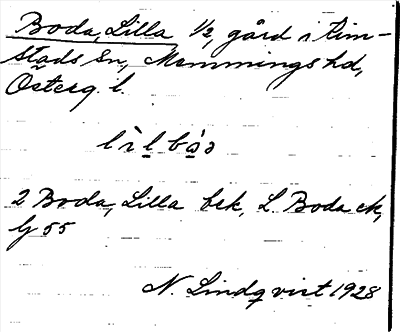 Boda, Lilla 1/2, gård i Kim-
stads sn, Memmings hd,
Österg. l.
lìlbòa
2 Boda, Lilla bek, L. Boda ek,
G 55
N. Lindqvist 1928